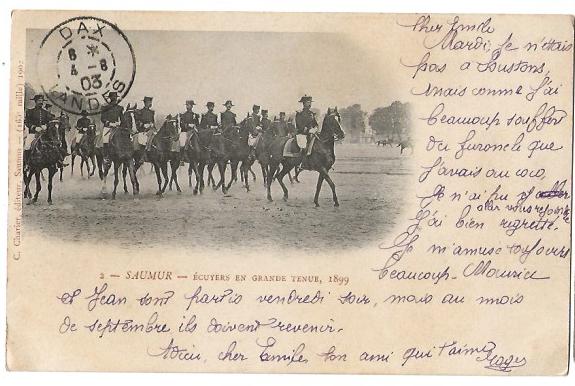 DAX
8 *
4 - 8
03
LANDES
C. Charier, éditeur, Saumur — (165e mille) 1902
2 — SAUMUR — ÉCUYERS EN GRANDE TENUE, 1899
Cher Emile
Mardi, Je n'étais
pas à Soustons,
mais comme j'ai
beaucoup souffert
du furoncle que
j'avais au cou,
Je n'ai pu
aller vous rejoindre
J'ai bien regretté.
Je m'amuse toujours
beaucoup. Maurice
et Jean sont partis vendredi soir, mais au mois
de septembre ils doivent revenir.
Adieu, cher Emile, ton ami qui t'aime